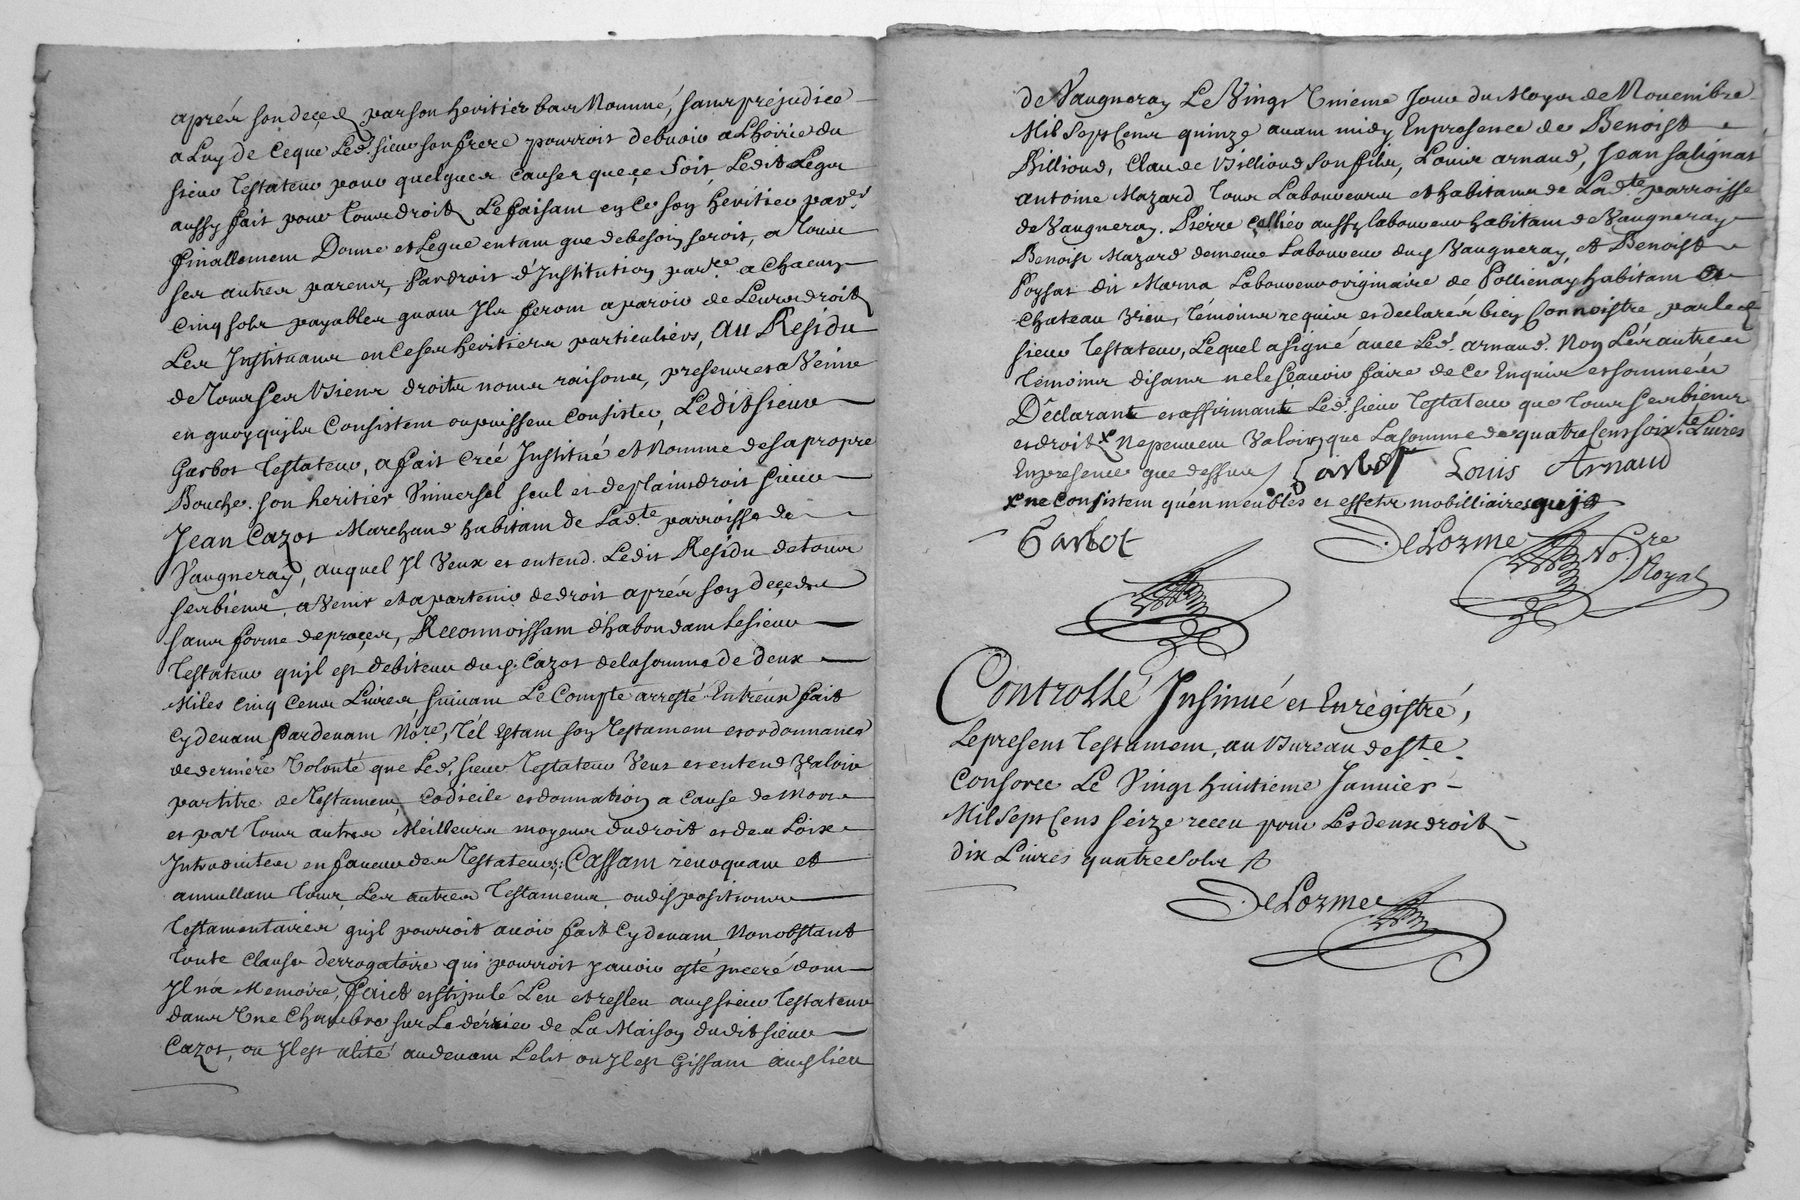 aprés son deçed par son heritier bas Nommé, sans prejudice
a Luy de Ceque Led. sieur son frere pourroit debvoir a Lhoirie du
sieur Testateur pour quelques causes queçe soit Ledit Legat
aussy fait pour tous droits Le faisant en ce son héritier par.er
finallement Donne et Legue entant que de besoin seroit, a tous
ses autres parens, Pardroit d'Institution par.re a chacun
cinq sols payables quant Ils feront aparoir de Leurs droits
Les Instituans en Ce ses heritiers particuliers, au Residu
de tous ses Biens droits noms raisons, presents et a Venir
en quoy quils Consistent ou puissent Consister, Ledit sieur
Garbot Testateur, a fait Créé Institué et Nommé de sa propre
Bouche son heritier Vniversel seul et de plains droit sieur
Jean Cazot Marchand habitant de Lad.te parroisse de
Vaugneray, auquel Il Veux et entend Ledit Residu de tous
ses biens a Venir et apartenir de droit aprés son deçeds
sans forme de proçes, Reconnoissant d'habondant Lesieur
Testateur quil est debiteur du s.r Cazot delasomme de deux
Miles cinq Cens Livres suivant Le Compte arresté Entréux fait
Cydevant Pardevant No.re, Tél Estant son Testament et ordonnance
de derniere Volonté que Led. sieur Testateur Veut et entend Valoir
partitre de Testament, codicile et donnation a cause de mort
et par tous autres Méilleurs moyens du droit et des Loix
Introduites en faveur des Testateurs; Cassant revoquant et
annullant tous Les autres Testamens ou dispositions
Testamentaires quil pourroit avoir fait Cydevant Nonobstant
toute clause derrogatoire qui pourroit y avoir esté jnceré dont
Il na Memoire, Faict et stipulé Leu et resleu aud sieur Testateur
dans Vne Chambre sur Le dérrier de La Maison dudit sieur
Cazot, ou Il est alité audevant Lelit ou Il est Gissant aud lieu
de Vaugneray Le Vingt Vnieme Jour du Moys de Novembre
Mil Sept Cens quinze avant midy En presence de Benoist
Billioud, Claude Billioud son fils, Louis arnaud, Jean salignat
antoine Mazard tous Laboureurs et habitans de Lad.te parroisse
de Vaugneray. Pierre Cellier aussy laboureur habitant de Vaugneray
Benoist Mazard de meme Laboureur dud Vaugneray, et Benoist
Poysat dit Marna Laboureur originaire de Pollienay habitant a
Chateau Vieu, témoins requis et declarés bien Connoistre par led
sieur Testateur, Lequel a signé avec Led. arnaud. Non Les autres
témoins disans nele sçavoir faire de Ce Enquis et sommés
Déclarant et affirmant Led. sieur Testateur que tous ses biens
et droits x Ne peuvent Valoir que La somme de quatre Cens soix.te Livres
En presence que dessus Garbot Louis Arnaud
x ne consistent quén meubles et effets mobilliaires
Garbot DeLorme No.re Royal
Controllé Insinué et Enrégistré,
Lepresent Testament, au Bureau de S.te
Consorce Le Vingt huitieme Janvier
Mil Sept Cens Seize receu pour Les deux droits
dix Livres quatre Sols
DeLorme